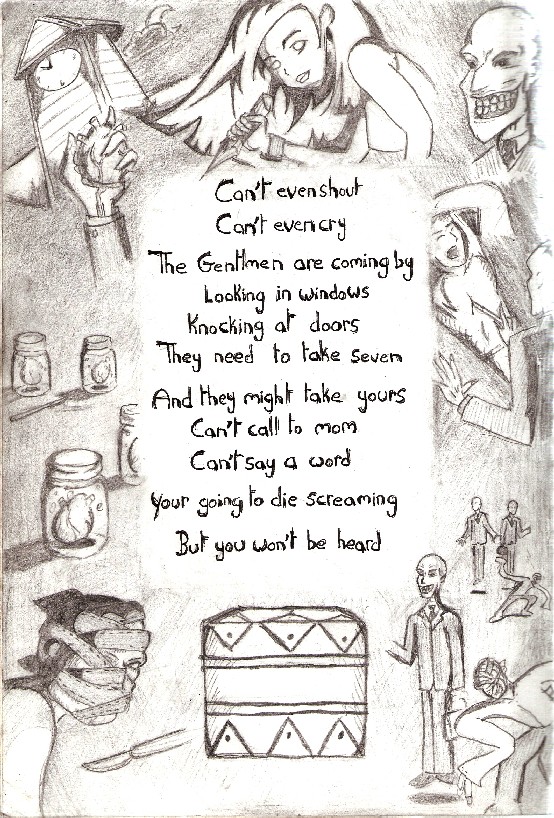 Can't even shout
Can't even cry
The Gentlmen are coming by
Looking in windows
Knocking at doors
They need to take seven
And they might take yours
Can't call to mom
Can't say a word
Your going to die screaming
But you won't be heard